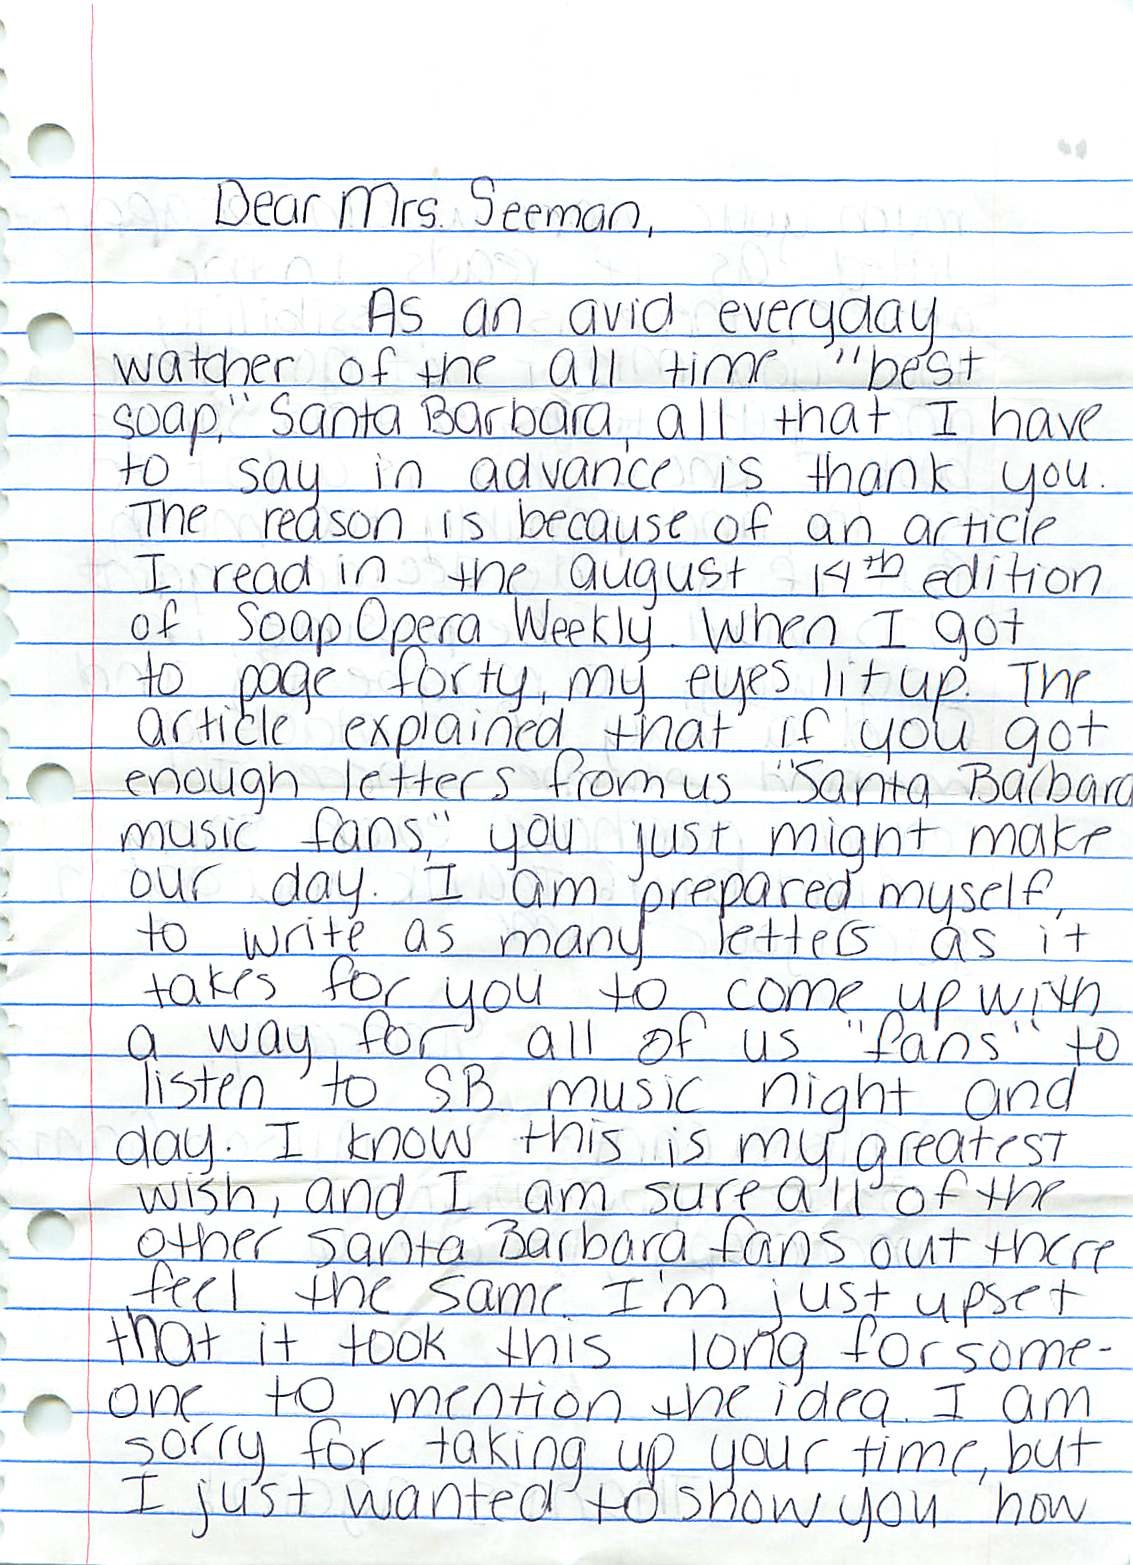 Dear Mrs. Seeman,
As an avid everyday
watcher of the all time "best
soap," Santa Barbara, all that I have
to say in advance is thank you.
The reason is because of an article
I read in the august 14th edition
of Soap Opera Weekly. When I got
to page forty, my eyes lit up. The
article explained that if you got
enough letters from us "Santa Barbara
music fans," you just might make
our day. I am prepared myself,
to write as many letters as it
takes for you to come up with
a way for all of us "fans" to
listen to S.B. music night and
day. I know this is my greatest
wish, and I am sure all of the
other Santa Barbara fans out there
feel the same. I'm just upset
that it took this long for some-
one to mention the idea. I am
sorry for taking up your time, but
I just wanted to show you how